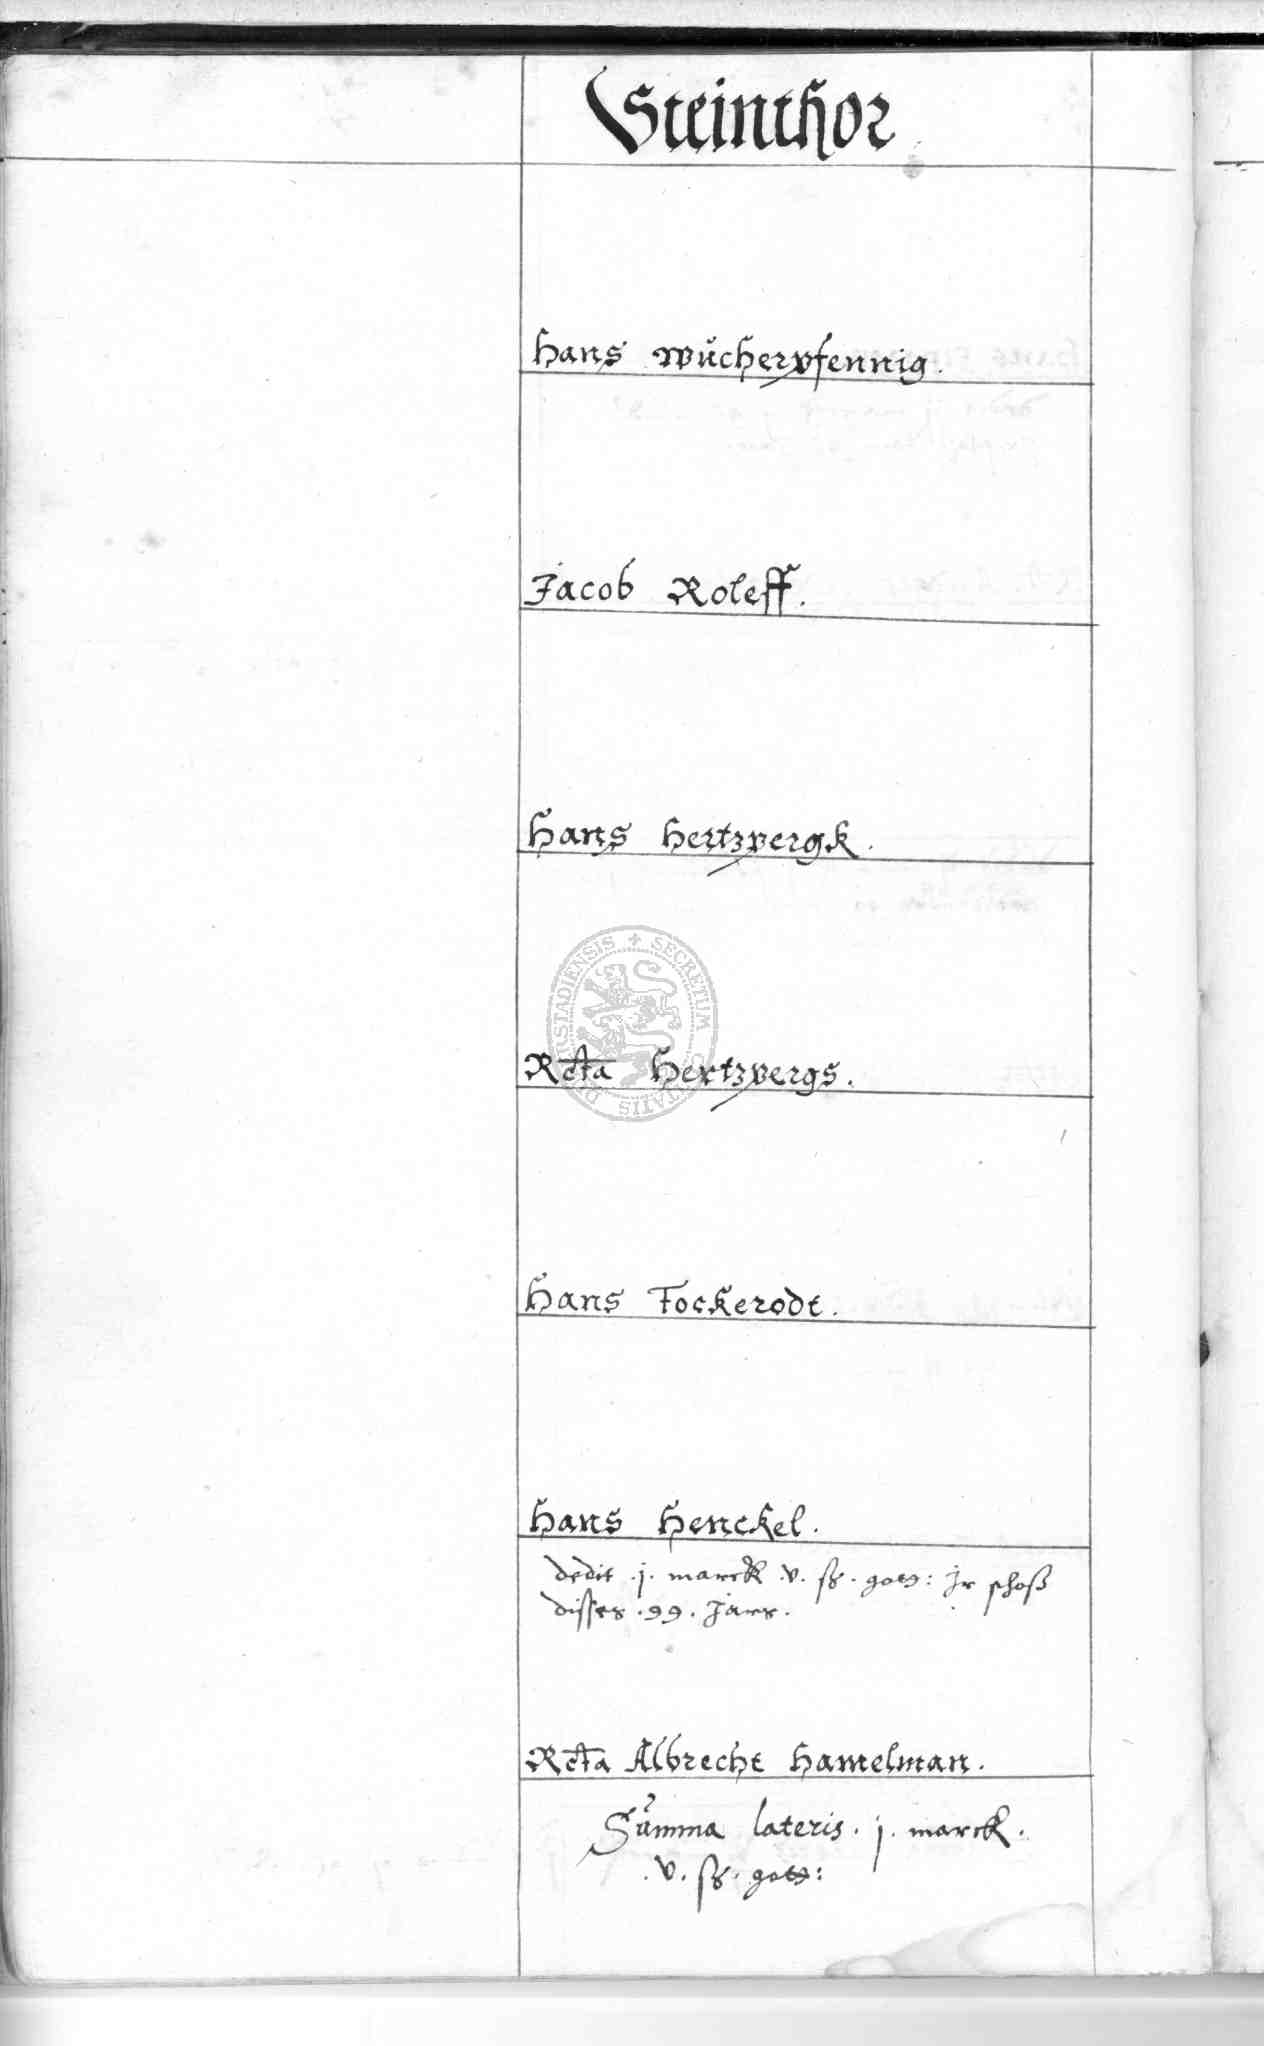 Steinthor
Hans Wucherpfennig.
Jacob Roleff.
Hans Hertzbergk.
Rcta Hertzbergs.
Hans Fockerodt.
Hans Henckel.
dedit .j. marck .v. ß. gots: Jr schoß
disses .99. Jars.
Rcta Albrecht Hamelman.
Summa lateris. j. marck.
.v. ß. gots:
SECRETUM